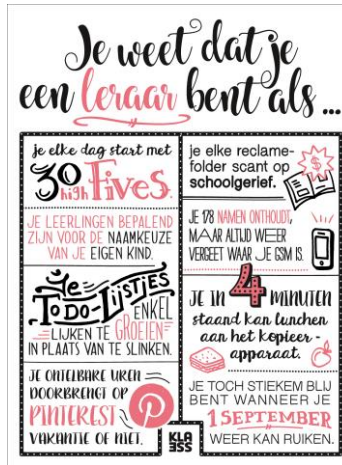 Je weet dat je
een leraar bent als ...
je elke dag start met
30 high Fives.
JE LEERLINGEN BEPALEND
ZIJN VOOR DE NAAMKEUZE
VAN JE EIGEN KIND.
Je
To Do-Lijstjes
ENKEL
LIJKEN TE GROEIEN
IN PLAATS VAN TE SLINKEN.
JE ONTELBARE UREN
DOORBRENGT OP
PINTEREST
VAKANTIE OF NIET.
je elke reclame-
folder scant op
schoolgerief.
JE 178 NAMEN ONTHOUDT,
MAAR ALTIJD WEER
VERGEET WAAR JE GSM IS.
JE IN 4 MINUTEN
staand kan lunchen
aan het kopieer-
apparaat.
JE TOCH STIEKEM BLIJ
BENT WANNEER JE
1 SEPTEMBER
WEER KAN RUIKEN.
KLA
SSE